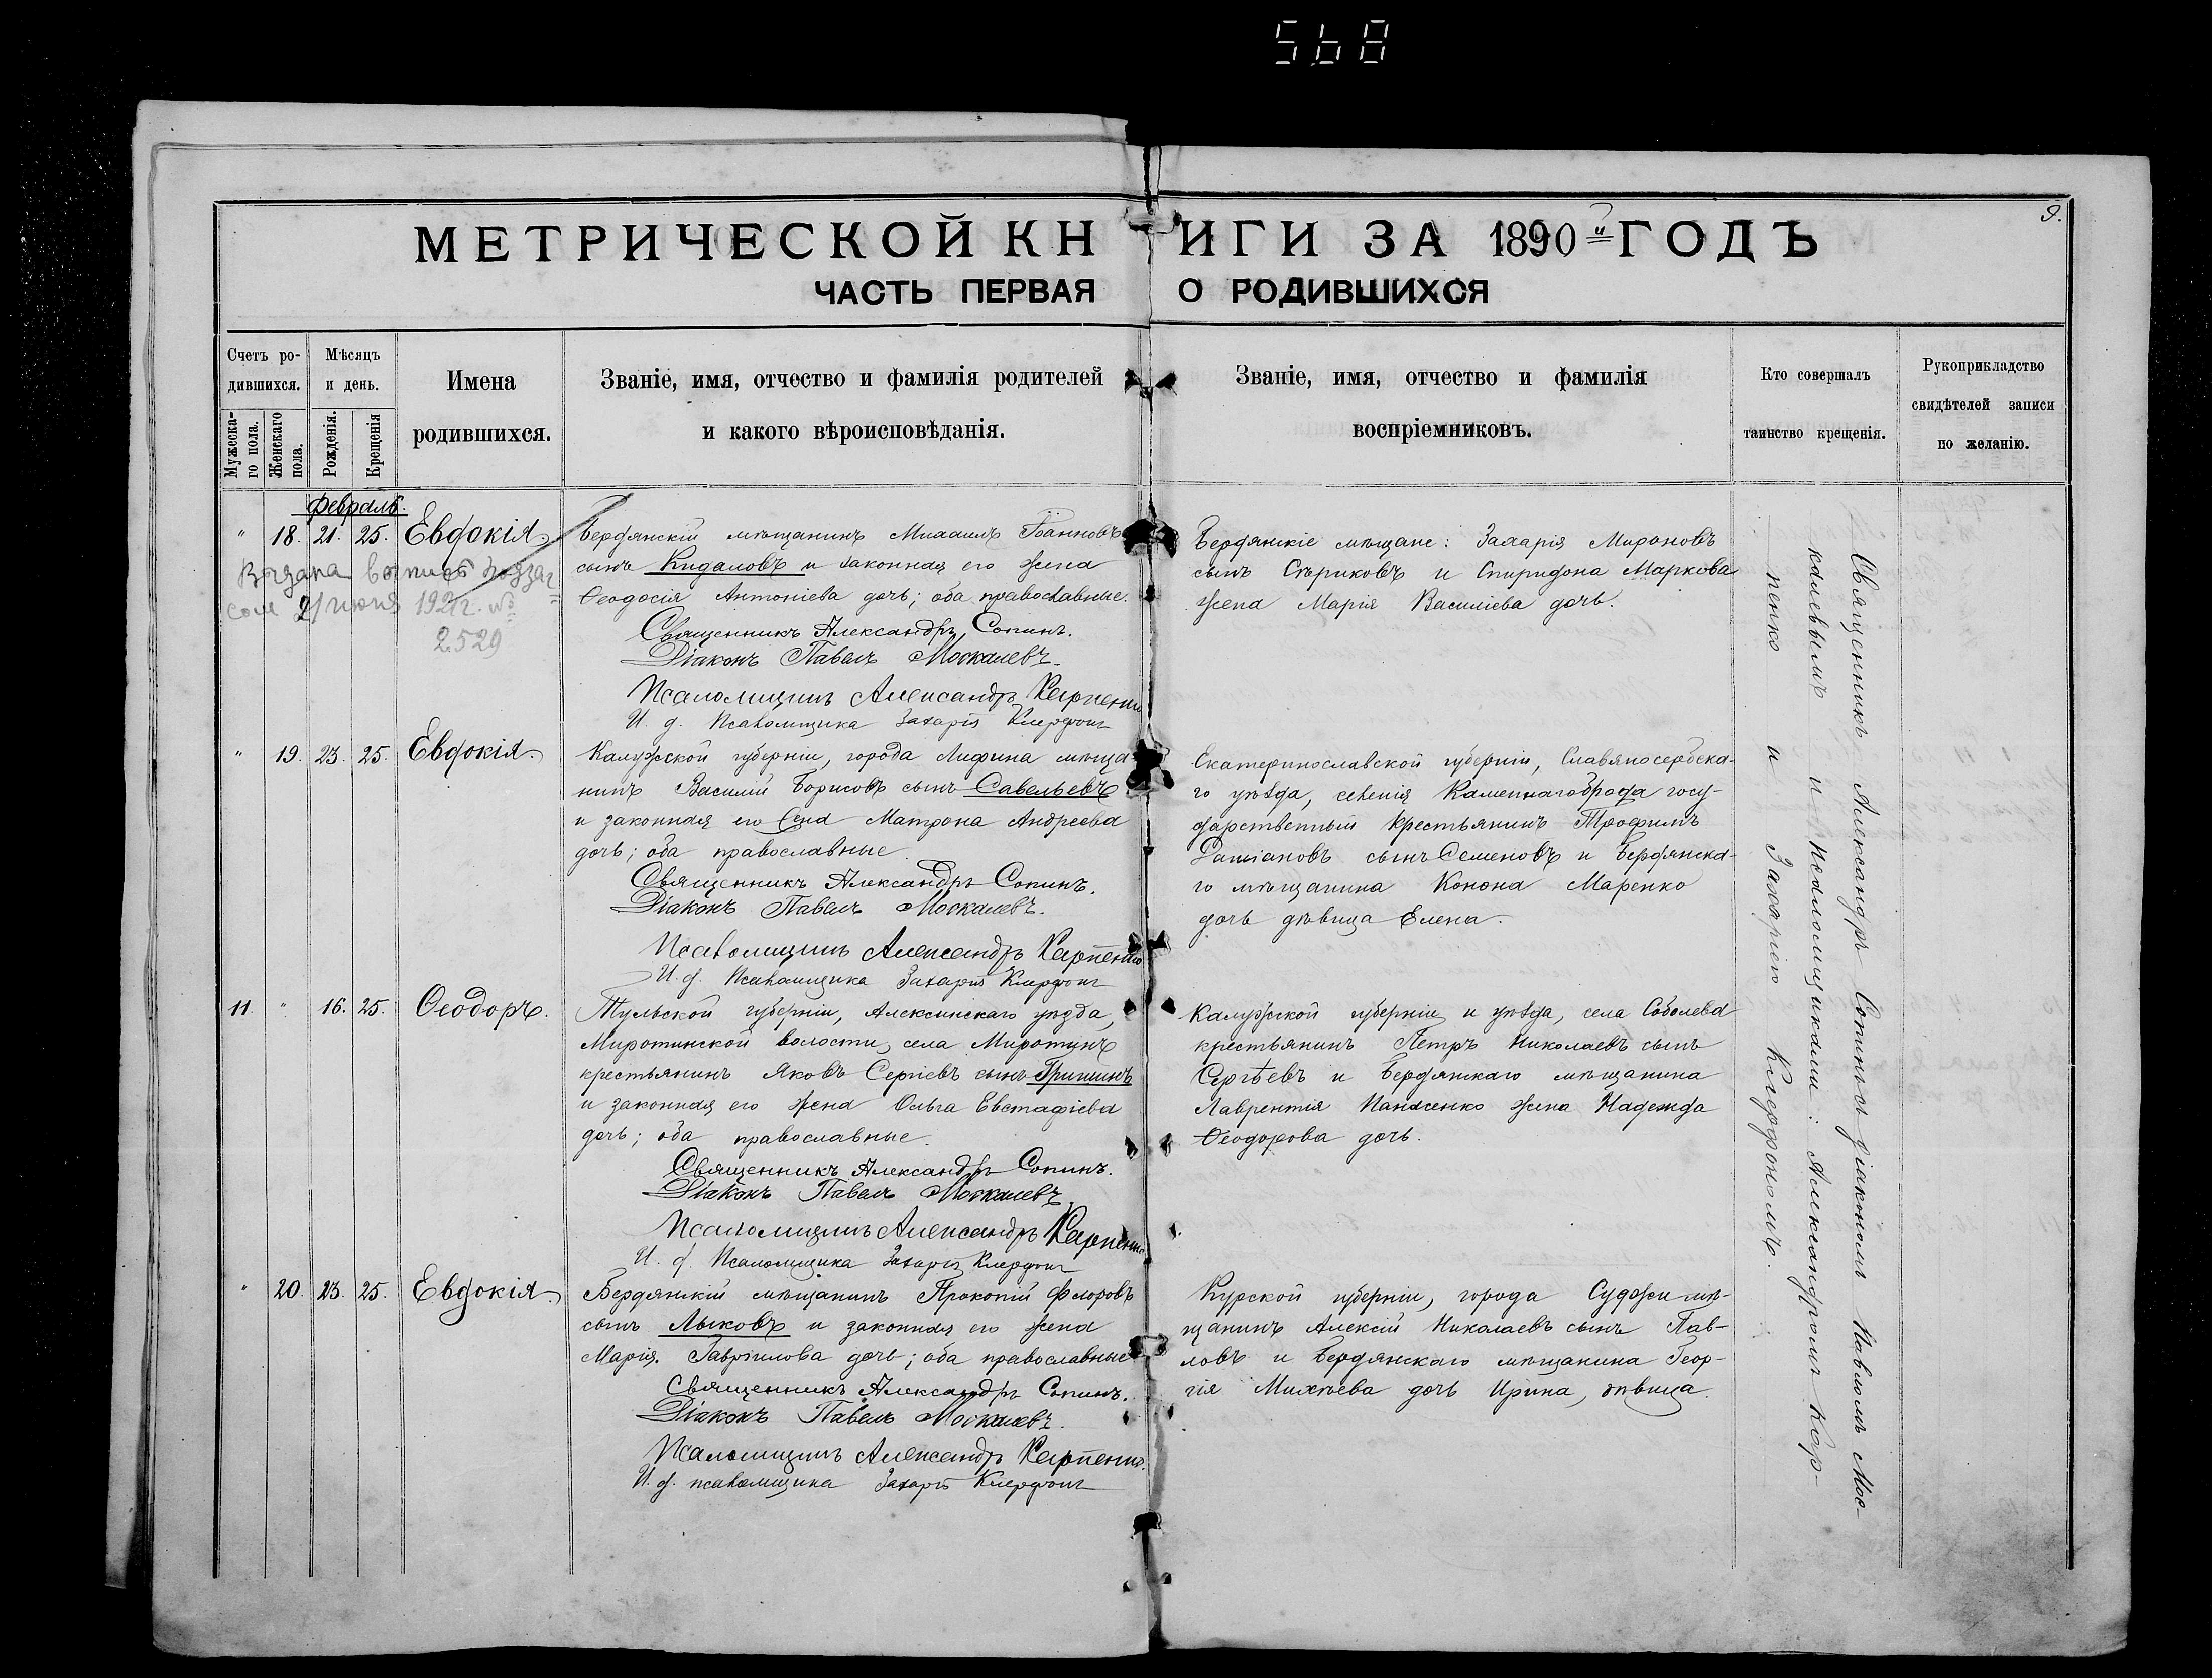 568
9.
МЕТРИЧЕСКОЙ КНИГИ ЗА 1890й ГОДЪ
ЧАСТЬ ПЕРВАЯ О РОДИВШИХСЯ
Счетъ ро-
дившихся.
Мужеска-
го пола.
Женскаго
пола.
Мѣсяцъ
и день.
Рожденія.
Крещенія
Имена
родившихся.
Званіе, имя, отчество и фамилія родителей
и какого вѣроисповѣданія.
Званіе, имя, отчество и фамилія
воспріемниковъ.
Кто совершалъ
таинство крещенія.
Рукоприкладство
свидѣтелей записи
по желанію.
Февраль.
" 18. 21. 25. Евдокія.
2529
Бердянскій мѣщанинъ Михаилъ Іоанновъ
сынъ Кидаловъ и законная его жена
Ѳеодосія Антоніева дочь; оба православные.
Священникъ Александръ Сопинъ.
Діаконъ Павелъ Москалевъ.
Псаломщикъ Александръ Карпенко
И. д. Псаломщика Захарія Клерфонъ
Бердянскіе мѣщане: Захарія Мироновъ
сынъ Сѣриковъ и Спиридона Маркова
жена Марія Василіева дочь.
" 19. 23. 25. Евдокія.
Калужской губерніи, города Лифина мѣща-
нинъ Василій Борисовъ сынъ Савельевъ
и законная его жена Матрона Андреева
дочь; оба православные.
Священникъ Александръ Сопинъ.
Діаконъ Павелъ Москалевъ.
Псаломщикъ Александръ Карпенко
И. д. Псаломщика Захарія Клерфонъ
Екатеринославской губерніи, Славяносербска-
го уѣзда, селенія Каменнаго брода госу-
дарственный крестьянинъ Трофимъ
Даміановъ сынъ Семеновъ и Бердянска-
го мѣщанина Конона Маренко
дочь дѣвица Елена.
11. " 16. 25. Ѳеодоръ.
Тульской губерніи, Алексинскаго уѣзда,
Миротинской волости, села Миротинъ
крестьянинъ Яковъ Сергіевъ сынъ Гришинъ
и законная его жена Ольга Евстафіева
дочь; оба православные.
Священникъ Александръ Сопинъ.
Діаконъ Павелъ Москалевъ.
Псаломщикъ Александръ Карпенко
И. д. Псаломщика Захарія Клерфонъ
Калужской губерніи и уѣзда, села Соболева
крестьянинъ Петръ Николаевъ сынъ
Сергѣевъ и Бердянскаго мѣщанина
Лаврентія Панасенко жена Надежда
Ѳеодорова дочь.
" 20. 23. 25. Евдокія.
Бердянскій мѣщанинъ Прокопій Флоровъ
сынъ Лыковъ и законная его жена
Марія Гавріилова дочь; оба православные
Священникъ Александръ Сопинъ.
Діаконъ Павелъ Москалевъ.
Псаломщикъ Александръ Карпенко.
И. д. псаломщика Захарія Клерфонъ
Курской губерніи, города Суджи мѣ-
щанинъ Алексій Николаевъ сынъ Пав-
ловъ и Бердянскаго мѣщанина Геор-
гія Михѣева дочь Ирина, дѣвица.
Священникъ Александръ Сопинъ съ діакономъ Павломъ Мос-
калевымъ и псаломщиками: Александромъ Кар-
пенко и Захаріею Клерфономъ.